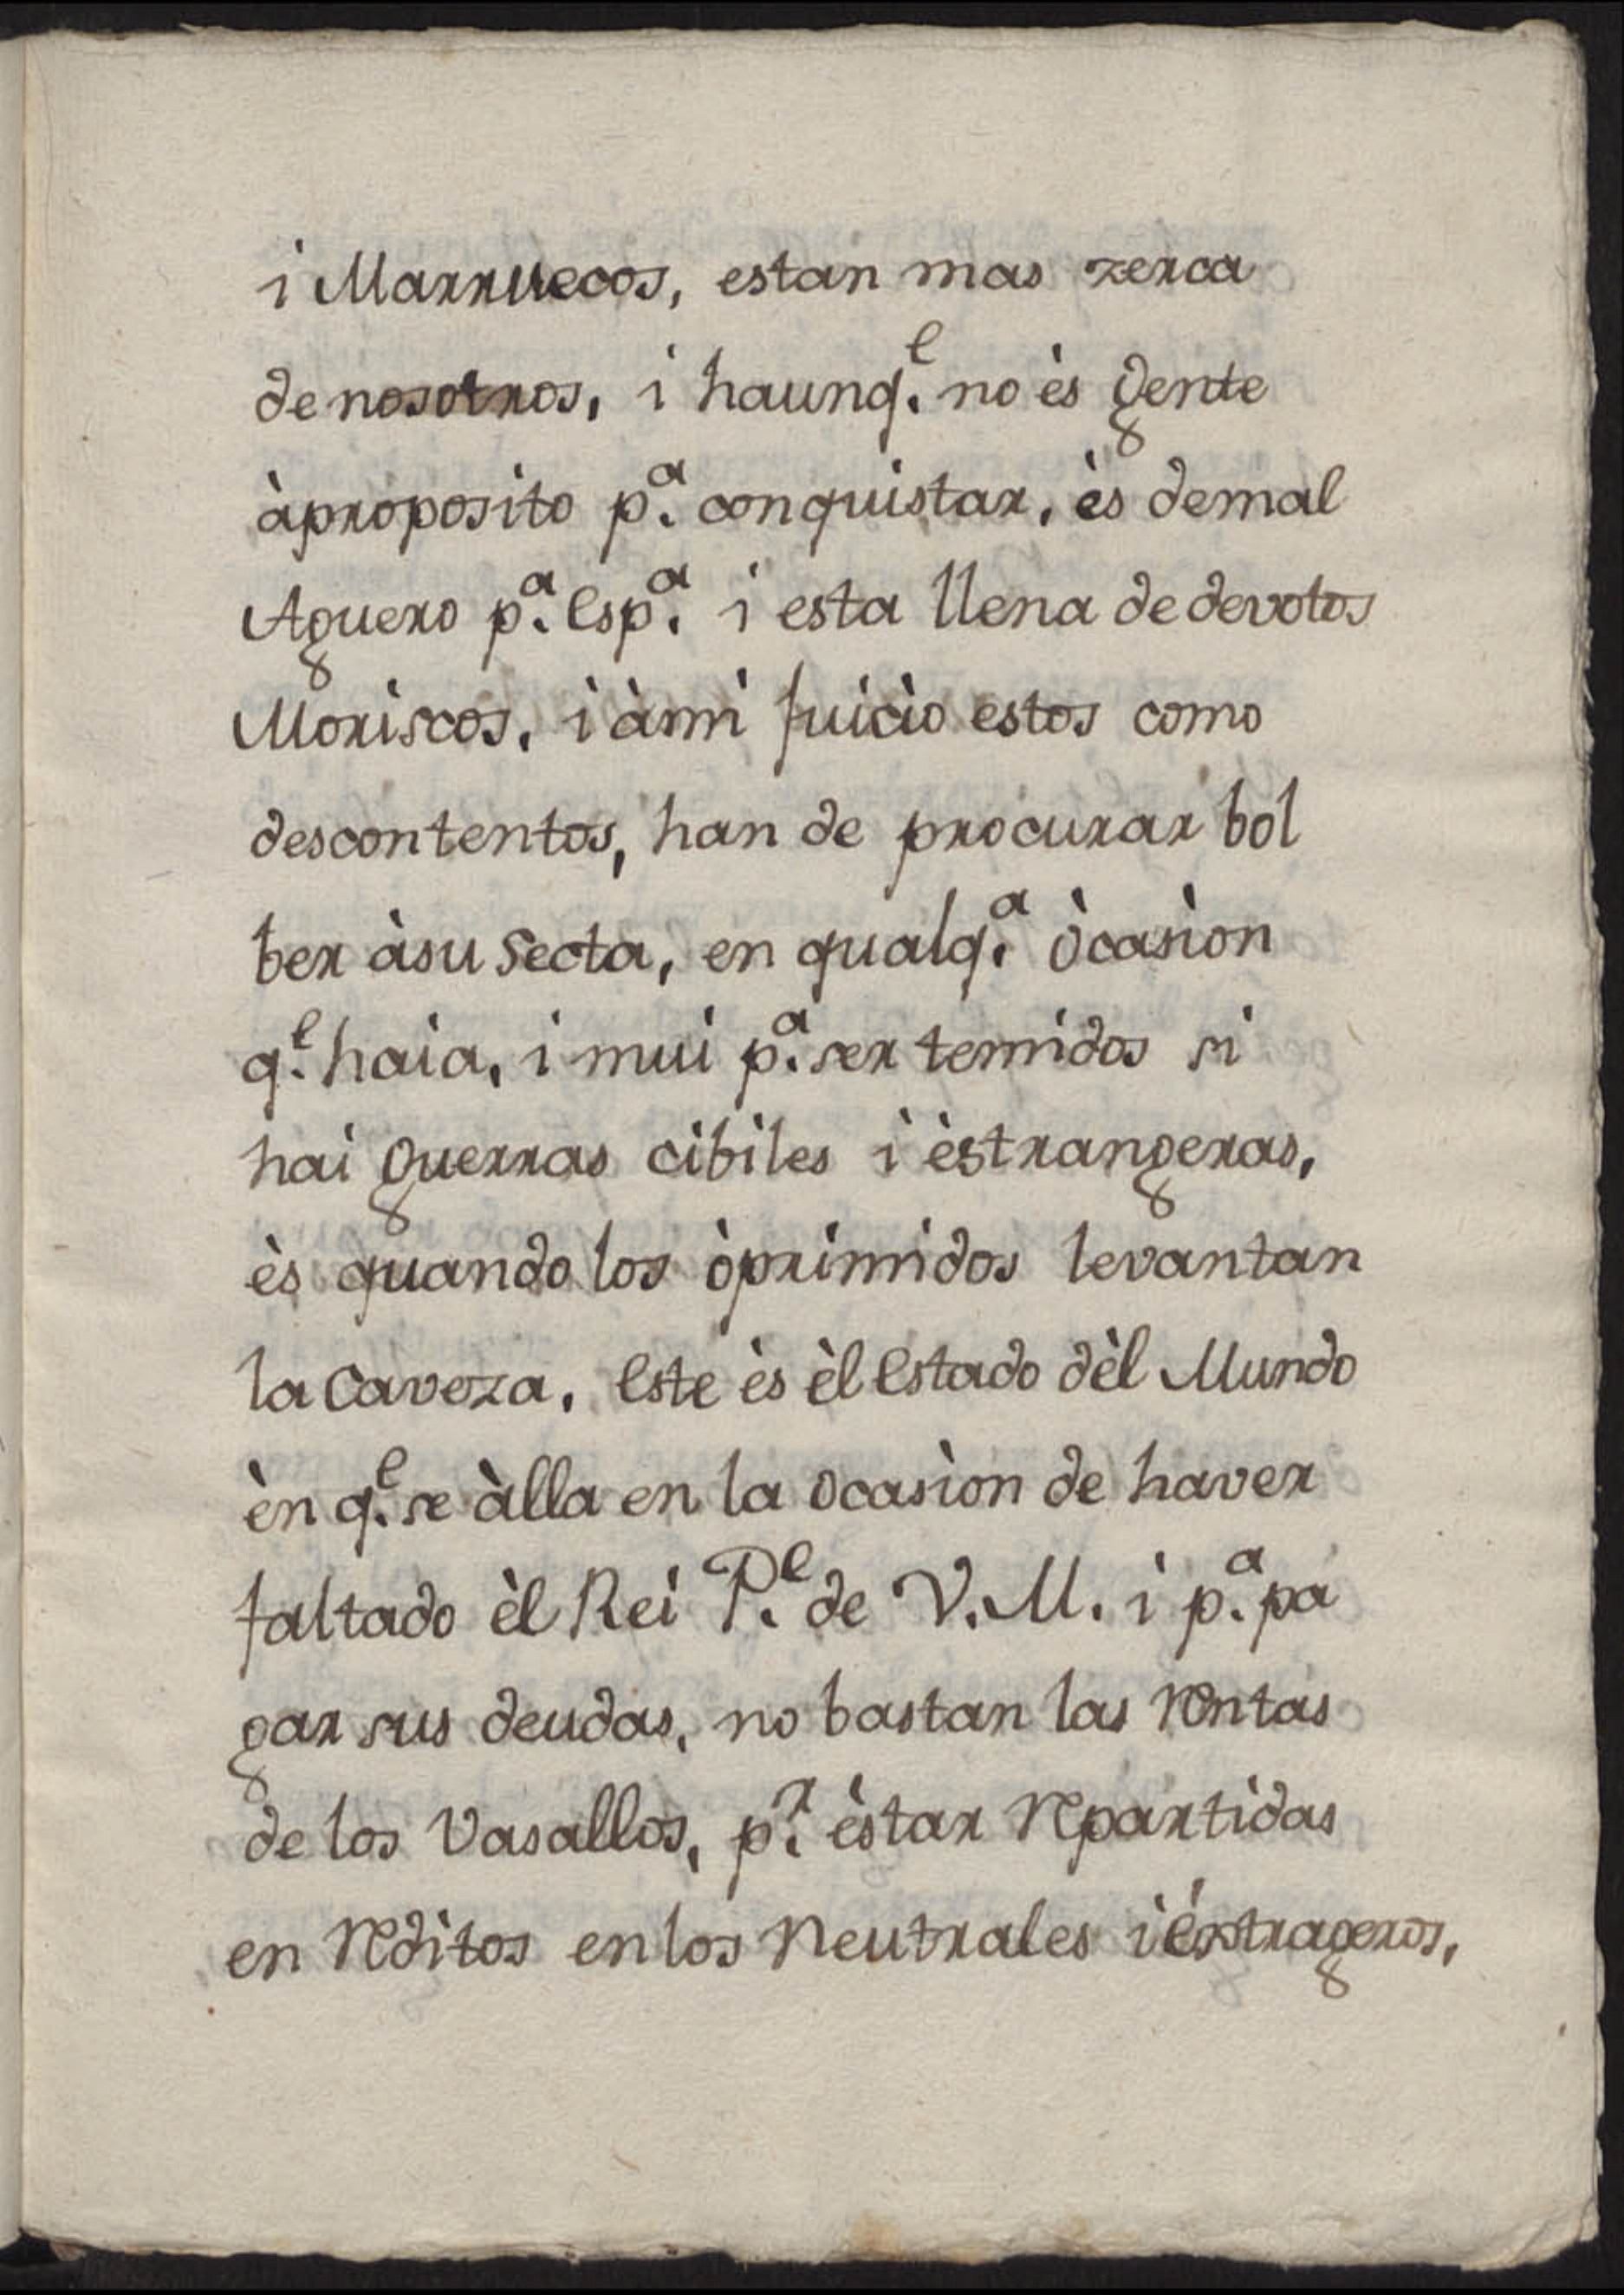 i Marruecos, estan mas zerca
de nosotros, i haunq.e no ès gente
àproposito p.a conquistar, ès demal
Aguero p.a Esp.a i esta llena de devotos
Moriscos, i àmi juicio estos como
descontentos, han de procurar bol
ber àsu Secta, en qualq.a òcasion
q.e haia, i mui p.a ser temidos si
hai guerras cibiles i èstrangeras,
ès quando los òprimidos levantan
la Caveza. Este ès èl Estado dèl Mundo
èn q.e se àlla en la ocasion de haver
faltado èl Rei P.e de V. M. i p.a pa
gar sus deudas, no bastan las rentas
de los Vasallos, p.r èstar repartidas
en reditos en los Neutrales i éxtrageros,